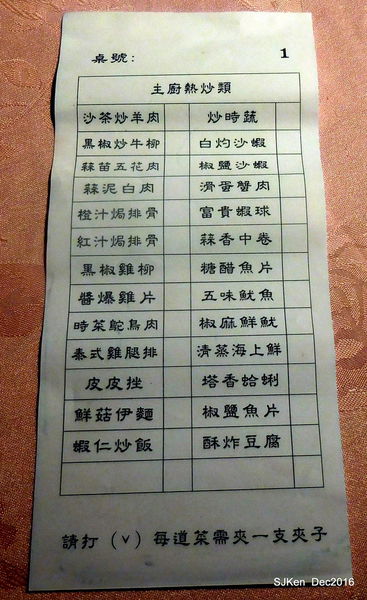 桌號: 1
主廚熱炒類
沙茶炒羊肉 炒時蔬
黑椒炒牛柳 白灼沙蝦
蒜苗五花肉 椒鹽沙蝦
蒜泥白肉 滑蛋蟹肉
橙汁焗排骨 富貴蝦球
紅汁焗排骨 蒜香中卷
黑椒雞柳 糖醋魚片
醬爆雞片 五味魷魚
時菜鴕鳥肉 椒麻鮮魷
泰式雞腿排 清蒸海上鮮
皮皮挫 塔香蛤蜊
鮮菇伊麵 椒鹽魚片
蝦仁炒飯 酥炸豆腐
請打 (v) 每道菜需夾一支夾子
SJKen_Dec2016